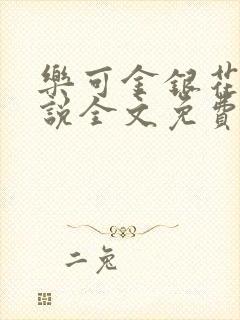 樂可金銀花
說全文免費
二兔